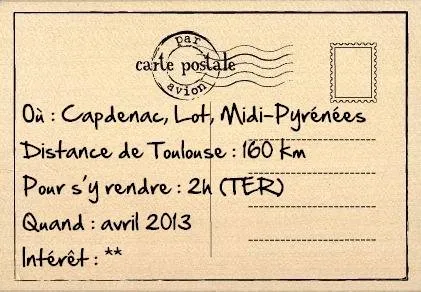 par
carte postale
avion
Où : Capdenac, Lot, Midi-Pyrénées
Distance de Toulouse : 160 km
Pour s'y rendre : 2h (TER)
Quand : avril 2013
Intérêt : **